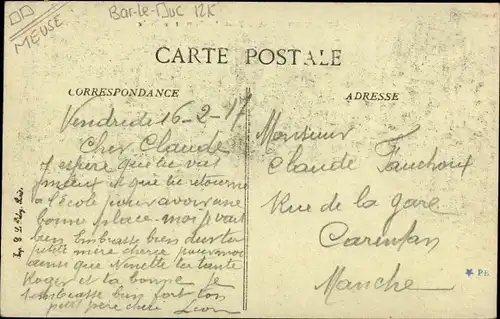 MEUSE
Bar-le-Duc 12K
CARTE POSTALE
CORRESPONDANCE
ADRESSE
Vendredi 16-2-17
Cher Claude
J espère que tu vas
mieux et que tu retourne
a l'école pour avoir une
bonne place moi je vait
bien Embrasse bien dur ta
petit mère cherie pour moi
ainsi que Ninette ta tante
Roger et ta bonne je
t embrasse bien fort ton
petit père cheri Léon
Monsieur
Claude Fauchoux
Rue de la gare
Carentan
Manche